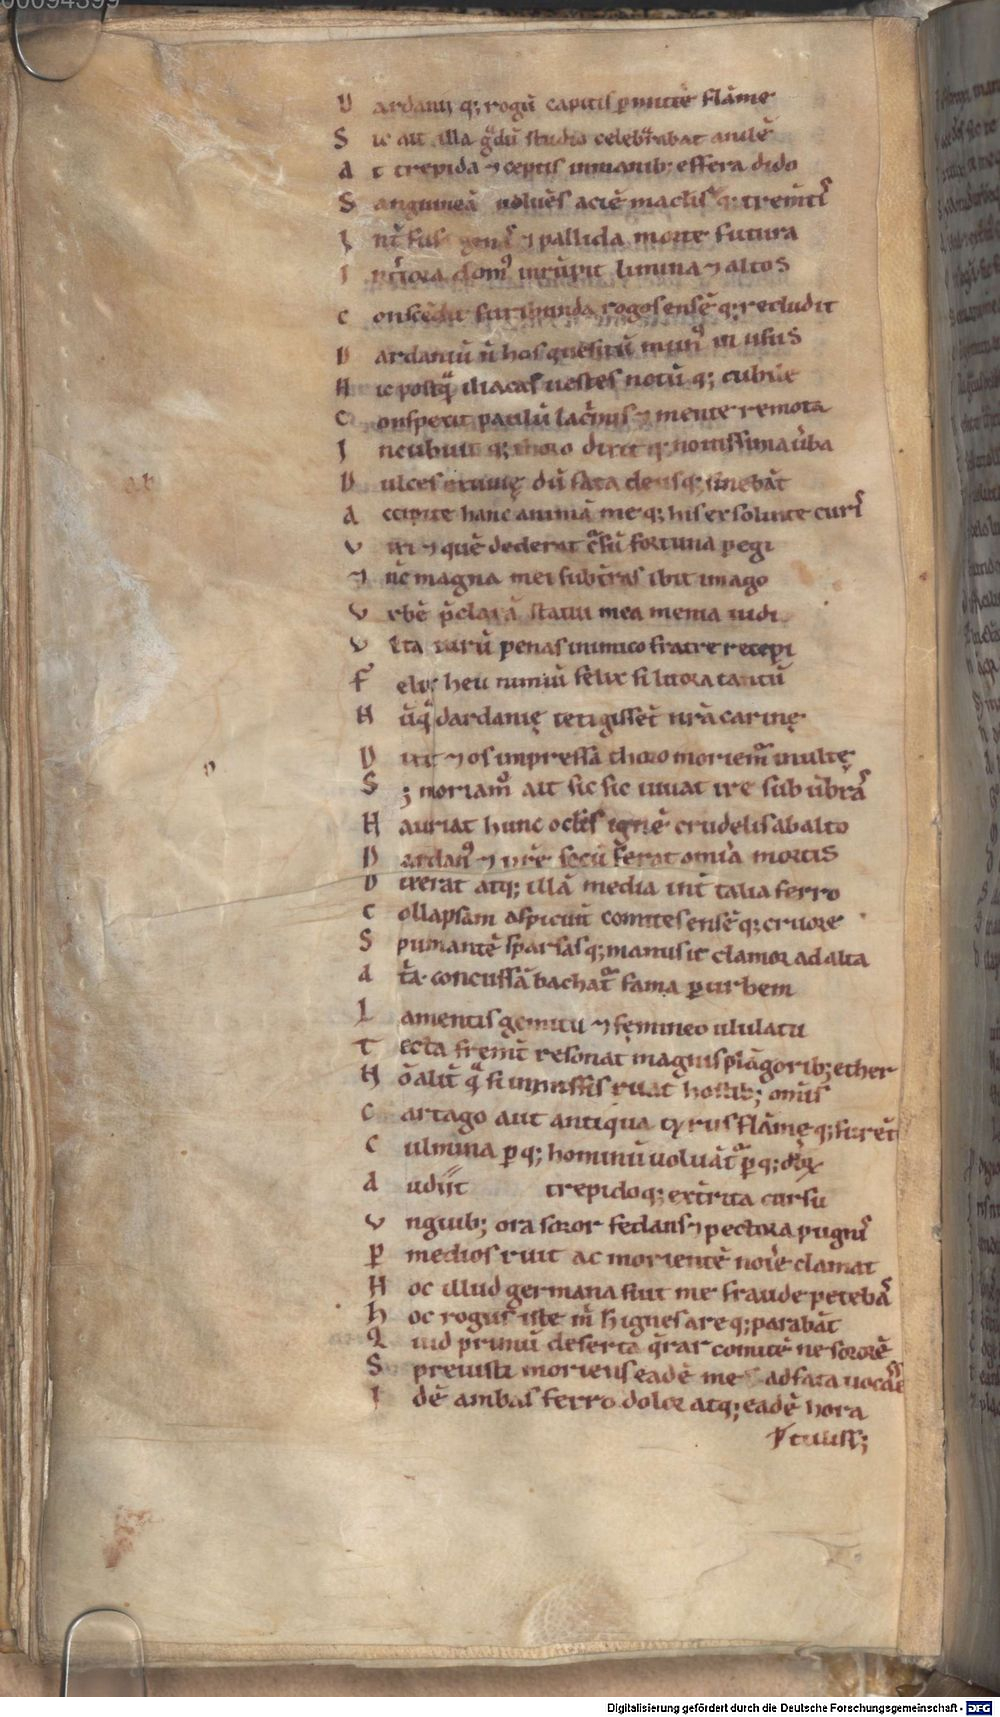 00094399
D ardanii q; rogū capitis ꝑmittē flāme
S ic ait illa gͣdū studio celebͣrabat anilē
A t trepida ⁊ ceptis inmanib; effera dido
S anguineā uoluēs aciē maclis q; tremētiˢ
I nt̄ fusa genaˢ ⁊ pallida morte futura
I nt̄iora domꝰ inrūpit limina ⁊ altos
C onscēdit furibunda rogos ensē q; recludit
D ardaniū n̄ hos quesitū munꝰ in usus
H ic postqͣ iliacas uestes notū q; cubile
C onspexit paulū lac̄mis ⁊ mente remota
I ncubuit q; thoro dixit q; nouissima ūba
D ulces exuuię dū fata deus q; sinebāt
A ccipite hanc animā me q; his exsoluite curiˢ
V ixi ⁊ quē dederat cͣsū fortuna ꝑegi
⁊ nc̄ magna mei sub t̄ras ibit imago
V rbē p̄clarā statui mea menia uidi
V lta uirū penas inimico fratre recepi
F elix heu nimiū felix si litora tantū
N ūqͣ dardanię tetigissēt nr̄a carinę
D ixit ⁊ os impressa thoro moriemͣ inultę
S ; moriamͦ ait sic sic iuuat ire sub ūbrāˢ
H auriat hunc oclis ignē crudelis ab alto
D ardanꝰ ⁊ nr̄e secū ferat omīa mortis
D ixerat atq; illā media int̄ talia ferro
C ollapsam aspiciūt comites ensē q; cruore
S pumantē sparsas q; manus it clamor ad alta
A t̄a concussā bachatͣ fama ꝑ urbem
L amentis gemitu ⁊ femineo ululatu
T ecta fremūt resonat magnis plāgorib; ether
N ō alit̄ qͣ si immissis ruat hostib; omīs
C artago aut antiqua tyrus flāmę q; furētˢ
C ulmina ꝑ q; hominū uoluāt̄ ꝑ q; deoꝝ
A udiit trepido q; ext̄rita cursu
V nguib; ora soror fedans ⁊ pectora pugniˢ
P medios ruit ac morientē noīe clamat
H oc illud germana fuit me fraude petebāˢ
H oc rogus iste m̄ h̄ ignes are q; parabāt
Q uid primū deserta q̄rar comitē ne sororē
S preuisti moriens eadē me ad fata uocāˢ
I dē ambas ferro dolor atq; eadē hora
tulisset;
Digitalisierung gefördert durch die Deutsche Forschungsgemeinschaft - DFG